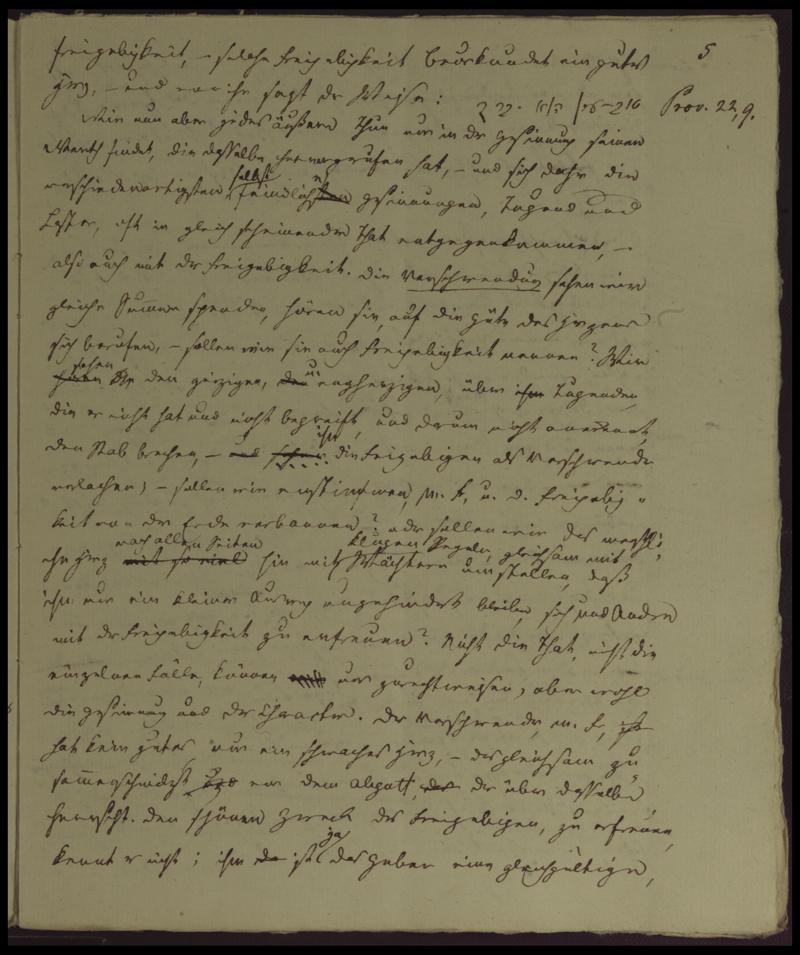 5
Freigebigkeit, – solche Freigebigkeit beurkundet ein gutes
Herz, – und von ihr sagt der Weise: טוב עין הוא יבורך Prov. 22, 9.
Wie nun aber jedes äußere Thun nur in der Gesinnung seinen
Werth findet, die dasselbe hervorgerufen hat, – und sich daher die
verschiedenartigsten, selbst feindlichsten Gesinnungen, Tugend und
Laster, oft in gleich scheinender That entgegenkommen, –
also auch mit der Freigebigkeit. Die Verschwendung sehen wir
gleiche Summen spenden, hören sie, auf die Güte des Herzens
sich berufen, – sollen wir sie auch Freigebigkeit nennen? Wir
sehen den geizigen, u. engherzigen, über Tugenden,
die er nicht hat und nicht begreift, und darum nicht anerkennt,
den Stab brechen, – ihn die Freigebigen als Verschwender
verlachen; – sollen wir einstimmen, m. Fr., u. d. Freigebig-
keit von der Erde verbannen? oder sollen wir das menschli-
che Herz nach allen Seiten hin mit klugen Regeln, gleichsam mit
Wächtern umstellen, daß
ihm nur ein kleiner Ausweg ungehindert bleibe, sich und Andere
mit der Freigebigkeit zu erfreuen? Nicht die That, nicht die
einzelnen Fälle, können uns zurechtweisen, aber wohl
die Gesinnung und der Character. Der Verschwender, m. Fr.,
hat kein gutes nur ein schwaches Herz, – das gleichsam zu-
sammenschmilzt vor dem Abgott, der über dasselbe
herrscht. Den schönen Zweck des Freigebigen, zu erfreuen,
kennt er nicht; ihm ist ja das Geben eine gleichgültige,